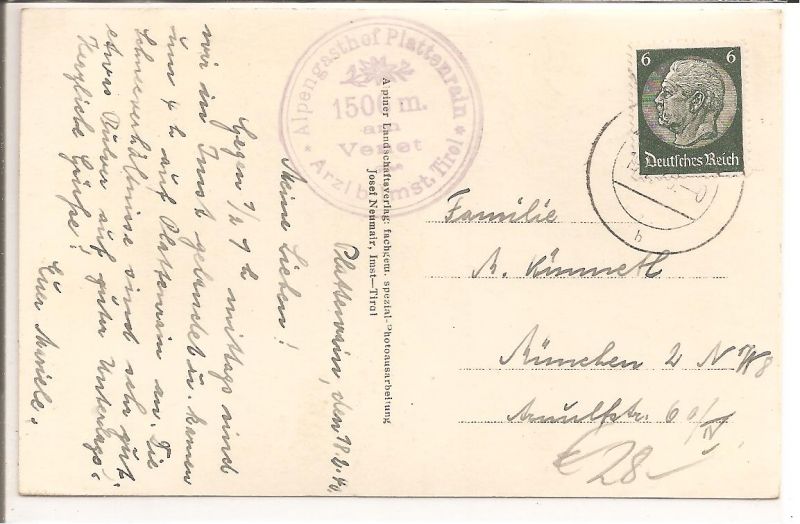 Plattenrain, den 18.2.40.
Meine Lieben!
Gegen 1/2 1 h mittags sind
wir in Imst gelandet u. kamen
um 4 h auf Plattenrain an. Die
Schneeverhältnisse sind sehr gut:
etwas Pulver auf guter Unterlage.
Herzliche Grüße!
Eure
Alpengasthof Plattenrain
1500 m.
am
Venet
Arzl b. Imst. Tirol
Alpiner Landschaftsverlag: fachgem. spezial-Photoausarbeitung
Josef Neumair, Imst—Tirol
6 6
Deutsches Reich
b
Familie
R. Kümmetl
München 2 N
Arnulfstr. 60/IV
€ 28.-